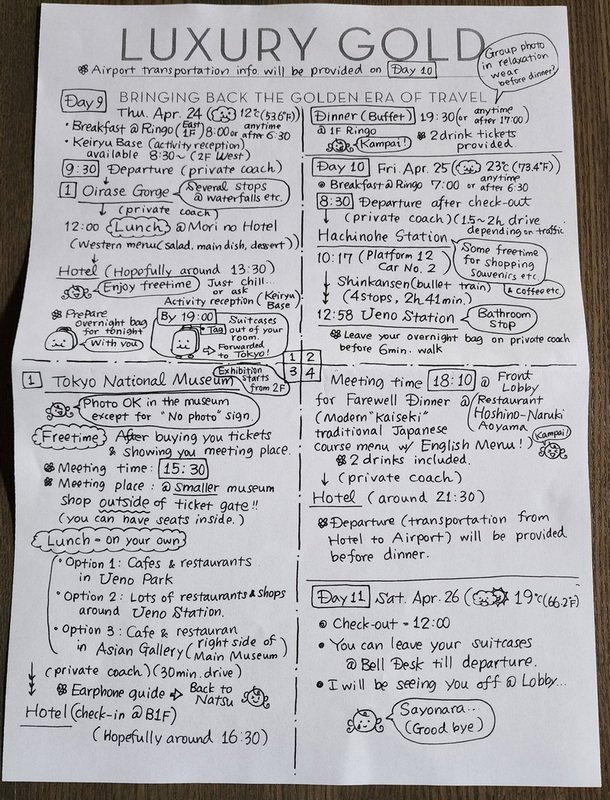 LUXURY GOLD
Airport transportation info. will be provided on Day 10
Group photo
in relaxation
wear
before dinner?
BRINGING BACK THE GOLDEN ERA OF TRAVEL
Day 9
Thu. Apr. 24 12°C (53.6°F)
• Breakfast @ Ringo (East 1F) 8:00 or anytime after 6:30
• Keiryu Base (activity reception)
available 8:30~ (2F West)
9:30 Departure (private coach)
↓
1 Oirase Gorge
Several stops
@ waterfalls etc.
↓ (private coach)
12:00 Lunch @ Mori no Hotel
(Western menu (salad, main dish, dessert))
↓
Hotel (Hopefully around 13:30)
Enjoy freetime
Just chill...
or ask
Activity reception (Keiryu Base)
Prepare
overnight bag
for tonight
With you
By 19:00
Suitcases
out of your
room.
Tag
→ Forwarded
to Tokyo!
1 2
3 4
Dinner (Buffet) 19:30 (or anytime after 17:00)
@ 1F Ringo
Kampai!
2 drink tickets
provided.
Day 10 Fri. Apr. 25 23°C (73.4°F)
Breakfast @ Ringo 7:00 or anytime after 6:30
8:30 Departure after check-out
↓ (private coach) (1.5~2h drive
depending on traffic)
Hachinohe Station
Some freetime
for shopping
souvenirs etc
& coffee etc
10:17 (Platform 12
Car No. 2)
Shinkansen (bullet train)
(4 stops, 2h. 41min.)
12:58 Ueno Station
Bathroom
stop
Leave your overnight bag on private coach
before 6min. walk
1 Tokyo National Museum
Exhibition
starts
from 2F
Photo OK in the museum
except for "No photo" sign
Freetime After buying you tickets
& showing you meeting place.
Meeting time: 15:30
Meeting place: @ Smaller museum
shop outside of ticket gate!!
(you can have seats inside.)
Lunch = on your own
• Option 1: Cafes & restaurants
in Ueno Park
• Option 2: Lots of restaurants & shops
around Ueno Station.
• Option 3: Cafe & restauran
in Asian Gallery (right side of Main Museum)
(private coach) (30min. drive)
Earphone guide ⇒ Back to
Natsu
Hotel (check-in @ B1F)
(Hopefully around 16:30)
Meeting time 18:10 @ Front
Lobby
for Farewell Dinner @ Restaurant
Hoshino-Naruki
Aoyama
(Modern "kaiseki"
traditional Japanese
course menu w/ English Menu!)
Kampai!
2 drinks included.
↓ (private coach)
Hotel (around 21:30)
Departure (transportation from
Hotel to Airport) will be provided
before dinner.
Day 11 Sat. Apr. 26 19°C (66.2°F)
Check-out = 12:00
• You can leave your suitcases
@ Bell Desk till departure.
• I will be seeing you off @ Lobby...
Sayonara...
(Good bye)